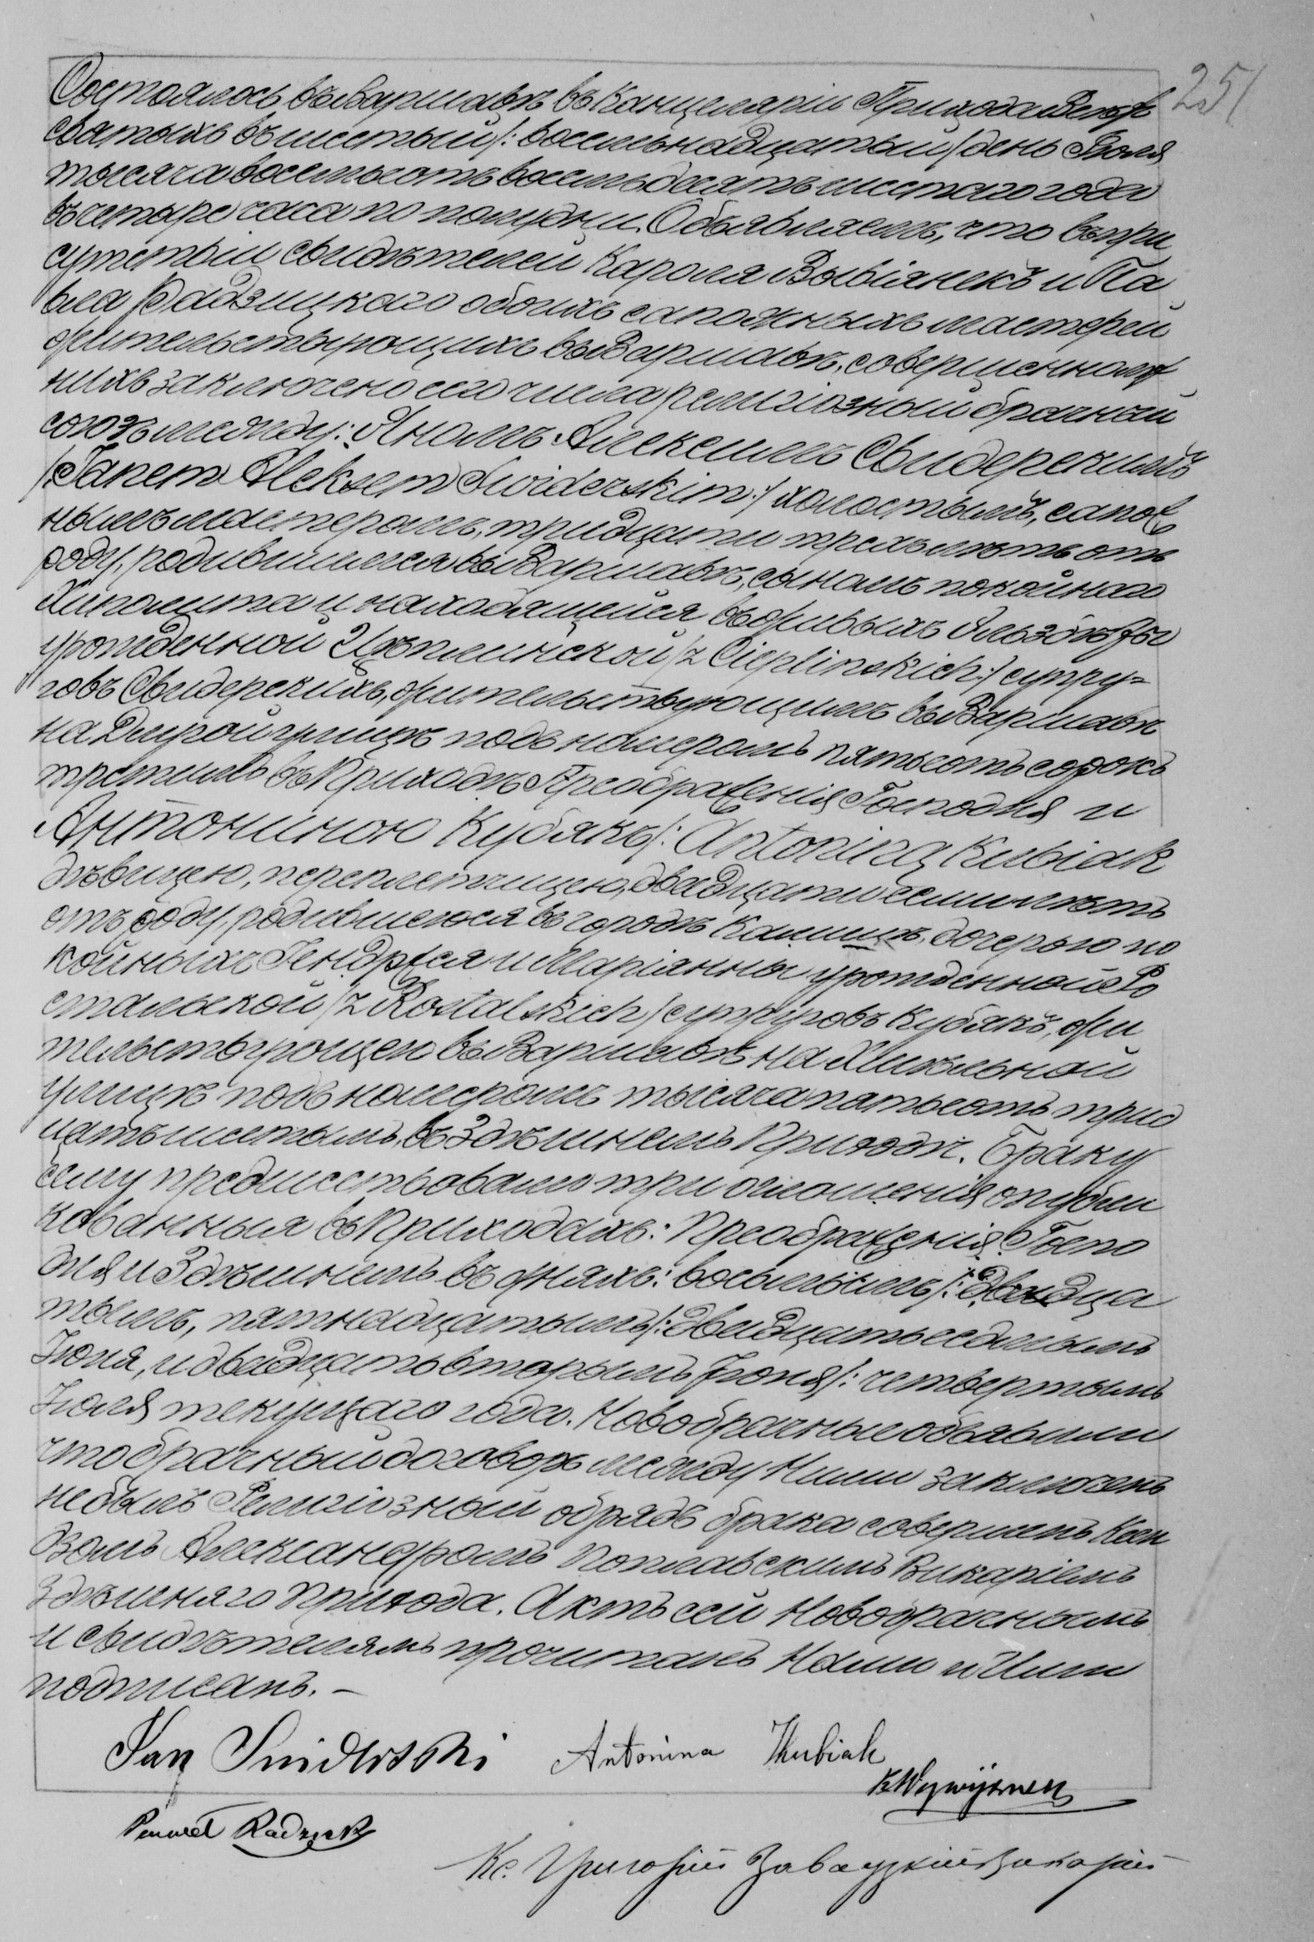 251
Состоялось въ Варшавѣ въ Канцеляріи Прихода Всѣхъ
Святыхъ въ шестый /: восемьнадцатый/ день Іюля
тысяча восемьсотъ восемьдесятъ шестаго года
въ четыре часа по полудни. Объявляемъ, что въ при
сутствіи свидѣтелей Кароля Вывіянекъ и Па
вла Радзицкаго обоихъ сапожныхъ мастерей
жительствующихъ въ Варшавѣ, совершеннолѣт
нихъ заключено сего числа религіозный брачный
союзъ между: Яномъ Алексемъ Свидерскимъ
/Janem Aleksem Swiderskim:/ холостымъ, сапож
нымъ мастеромъ, тридцати трехъ лѣтъ отъ
роду, родившимся въ Варшавѣ, сыномъ покойнаго
Ипполита и находящейся въ живыхъ Эльзбѣты
урожденной Цѣплинской /z Cieplinskich:/ супру=
говъ Свидерскихъ, жительствующимъ въ Варшавѣ
на Дикой улицѣ подъ номеромъ пятьсотъ сорокъ
третимъ въ Приходѣ Преображенія Господня и
Антониною Кубякъ /: Antoniną Kubiak
дѣвицею, переплетчицею, двадцати семи лѣтъ
отъ роду, родившеюся въ городѣ Калишѣ, дочерью по
койныхъ Гендрżея и Маріянны урожденной Ро
стальской /z Rostalskich/ супруговъ Кубякъ, жи
тельствующею въ Варшавѣ на Хмѣльной
улицѣ подъ номеромъ тысяча пятьсотъ трид
цать шестымъ, въ Здѣшнемъ Приходѣ. Браку
сему предшествовали три оглашенія опубли
кованныя въ Приходахъ: Преображенія Госпо
дня и Здѣшнемъ въ дняхъ: восьмымъ /: двадца
тымъ, пятнадцатымъ /: двадцать седьмымъ
Іюня, и двадцать вторымъ Іюня /: четвертымъ
Іюля текущаго года. Новобрачные объявили
что брачный договоръ между ними заключенъ
не былъ Религіозный обрядъ брака совершенъ Ксен
дзомъ Александромъ Викаріемъ
здѣшняго Прихода. Актъ сей Новобрачнымъ
и свидѣтелямъ прочитанъ Нами и Ими
подписанъ. –
Jan Swiderski Antonina Kubiak
K Wywijanek
Paweł Radzicki
Кс. Григорій Завадзкій Викарій